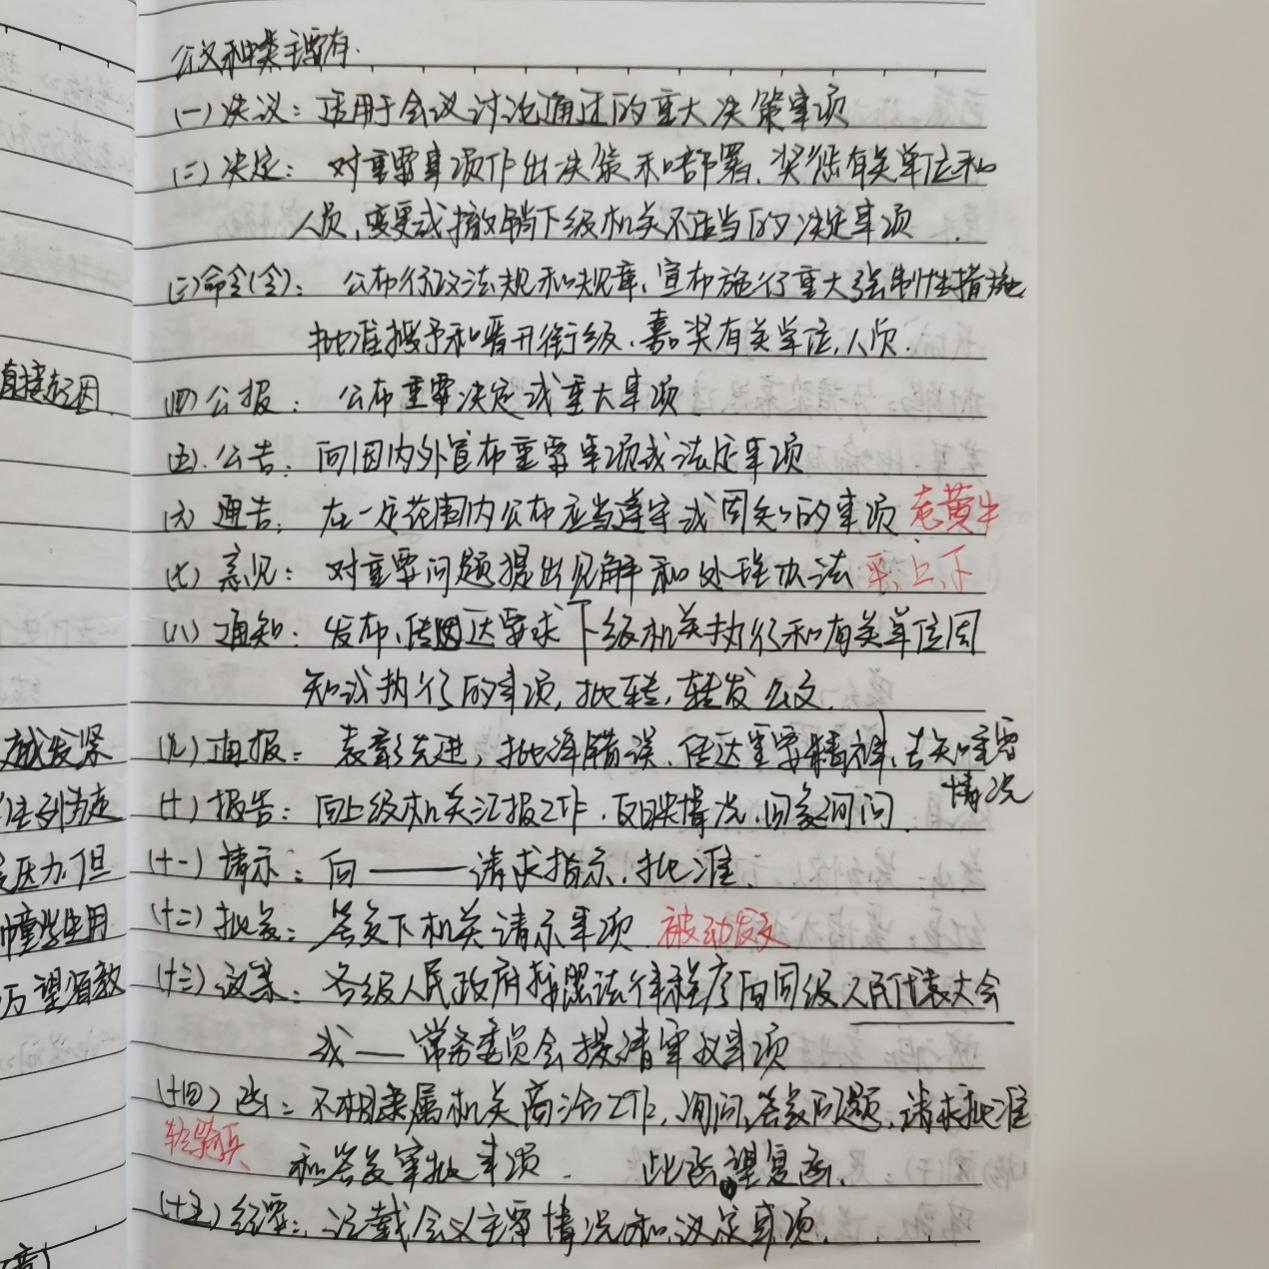 公文种类主要有.
(一)决议：适用于会议讨论通过的重大决策事项
(二)决定：对重要事项作出决策和部署、奖惩有关单位和
人员、变更或撤销下级机关不适当的决定事项.
(三)命令(令)：公布行政法规和规章、宣布施行重大强制性措施
批准授予和晋升衔级、嘉奖有关单位、人员.
(四)公报：公布重要决定或重大事项
(五).公告：向国内外宣布重要事项或法定事项
(六)通告：在一定范围内公布应当遵守或周知的事项 老黄牛
(七)意见：对重要问题提出见解和处理办法 平、上、下
(八)通知：发布、传达要求下级机关执行和有关单位周
知或执行的事项，批转，转发公文.
(九)通报：表彰先进，批评错误、传达重要精神、告知重要
情况
(十)报告：向上级机关汇报工作、反映情况、回复询问.
(十一)请示：向——请求指示、批准.
(十二)批复：答复下机关请示事项 被动发文
(十三)议案：各级人民政府按照法律程序向同级人民代表大会
或—常务委员会提请审议事项
(十四)函：不相隶属机关商洽工作、询问、答复问题、请求批准
轻骑兵
和答复审批事项. 此函、望复函.
(十五)纪要：记载会议主要情况和议定事项.
直接起因
越发紧
压力.但
望有教